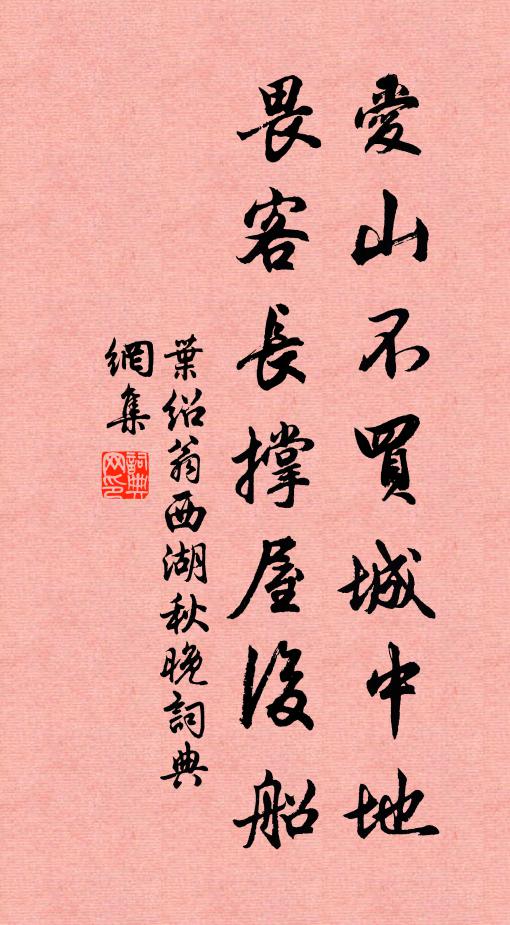 愛山不買城中地
畏客長撐屋後船
葉紹翁西湖秋晚詞典
網集
詞典
网印